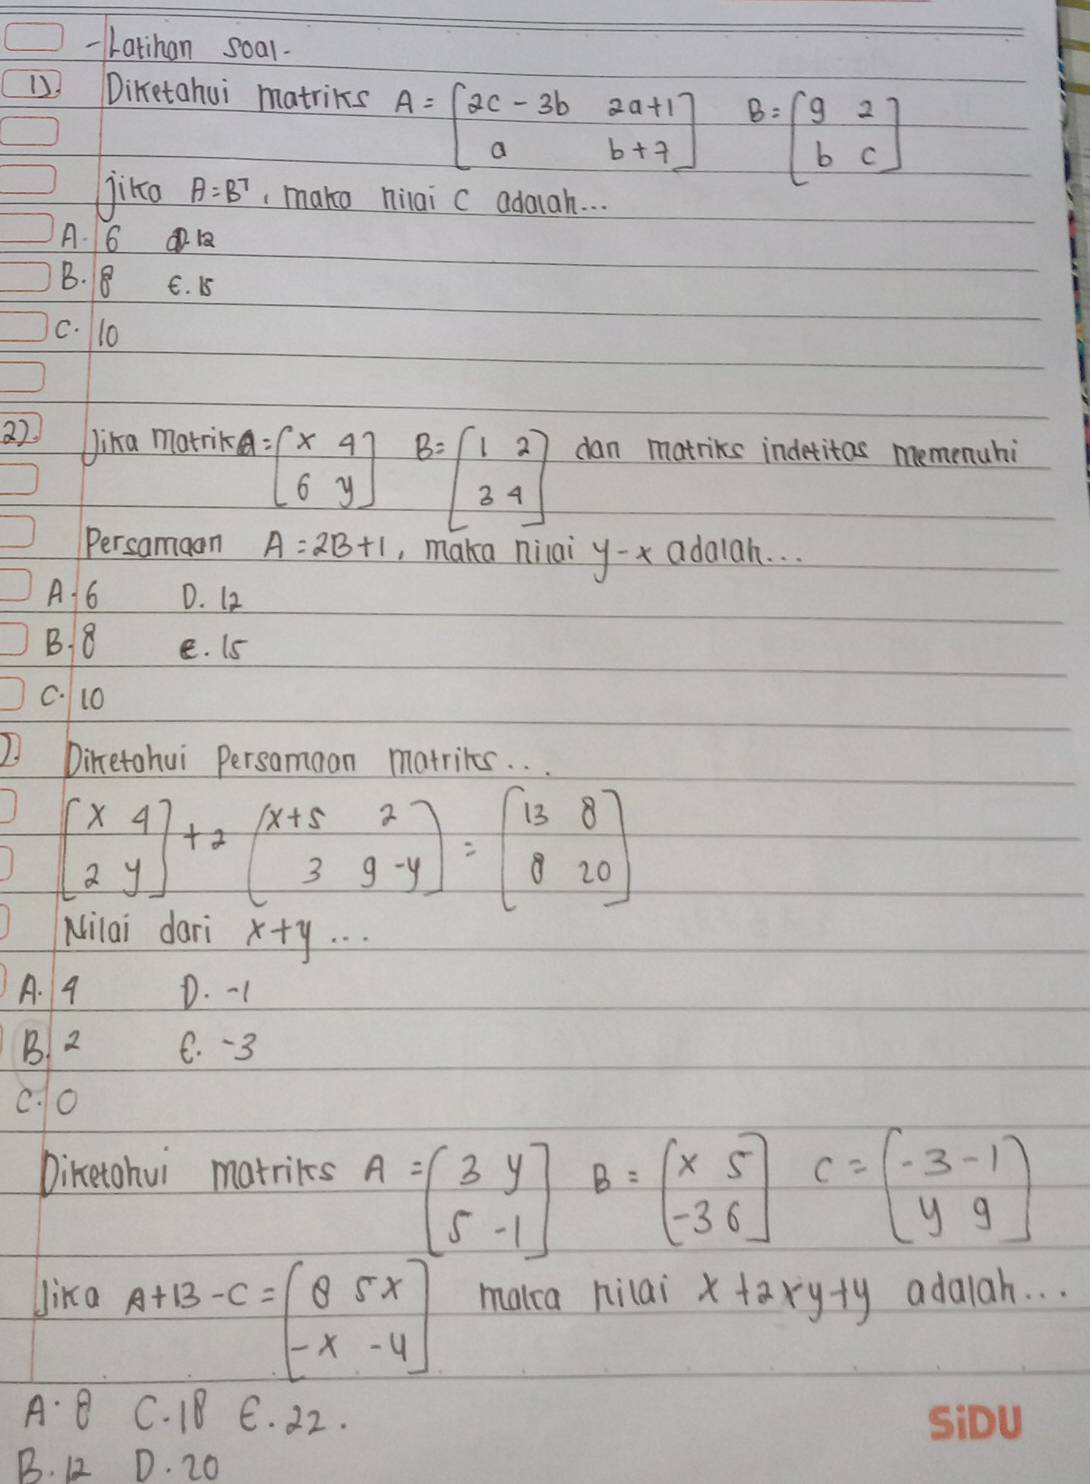 - Latihan soal -
1). Diketahui matriks A = [2c - 3b 2a+1] B = [9 2]
[a b+7] [b c]
jika A=Bᵀ, maka nilai C adalah...
A. 6 D. 12
B. 8 E. 15
C. 10
2). Jika matrik A = [x 4] B = [1 2] dan matriks indetitas memenuhi
[6 y] [3 4]
Persamaan A = 2B+1, maka nilai y-x adalah...
A. 6 D. 12
B. 8 e. 15
C. 10
). Diketahui Persamaan matriks...
[x 4] + 2 [x+5 2] = [13 8]
[2 y] [3 9-y] [8 20]
Nilai dari x+y ...
A. 4 D. -1
B. 2 E. -3
C. 0
Diketahui matriks A = [3 y] B = [x 5] C = [-3 -1]
[5 -1] [-3 6] [y 9]
Jika A+B-C = [8 5x] maka nilai x+2xy+y adalah...
[-x -4]
A. 8 C. 18 E. 22.
B. 12 D. 20
SiDU